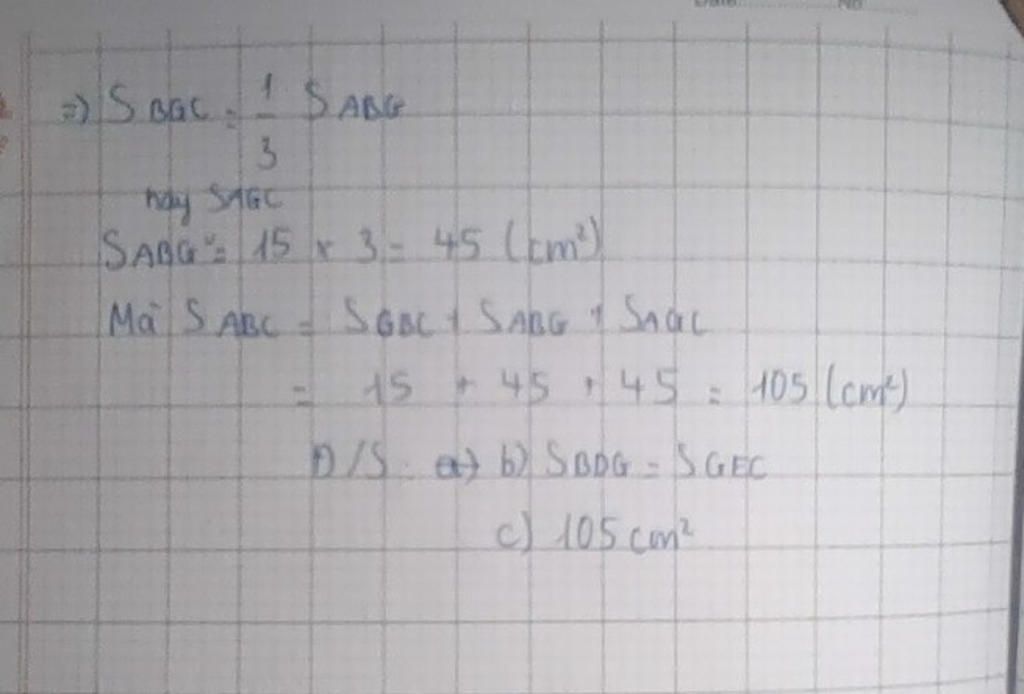 =) S BGC = 1/3 S ABG
hay SAGC
SABG = 15 x 3 = 45 (cm²)
Mà S ABC = SGBC + SABG + SAGC
= 15 + 45 + 45 = 105 (cm²)
Đ/S: b) SBDG = SGEC
c) 105 cm²